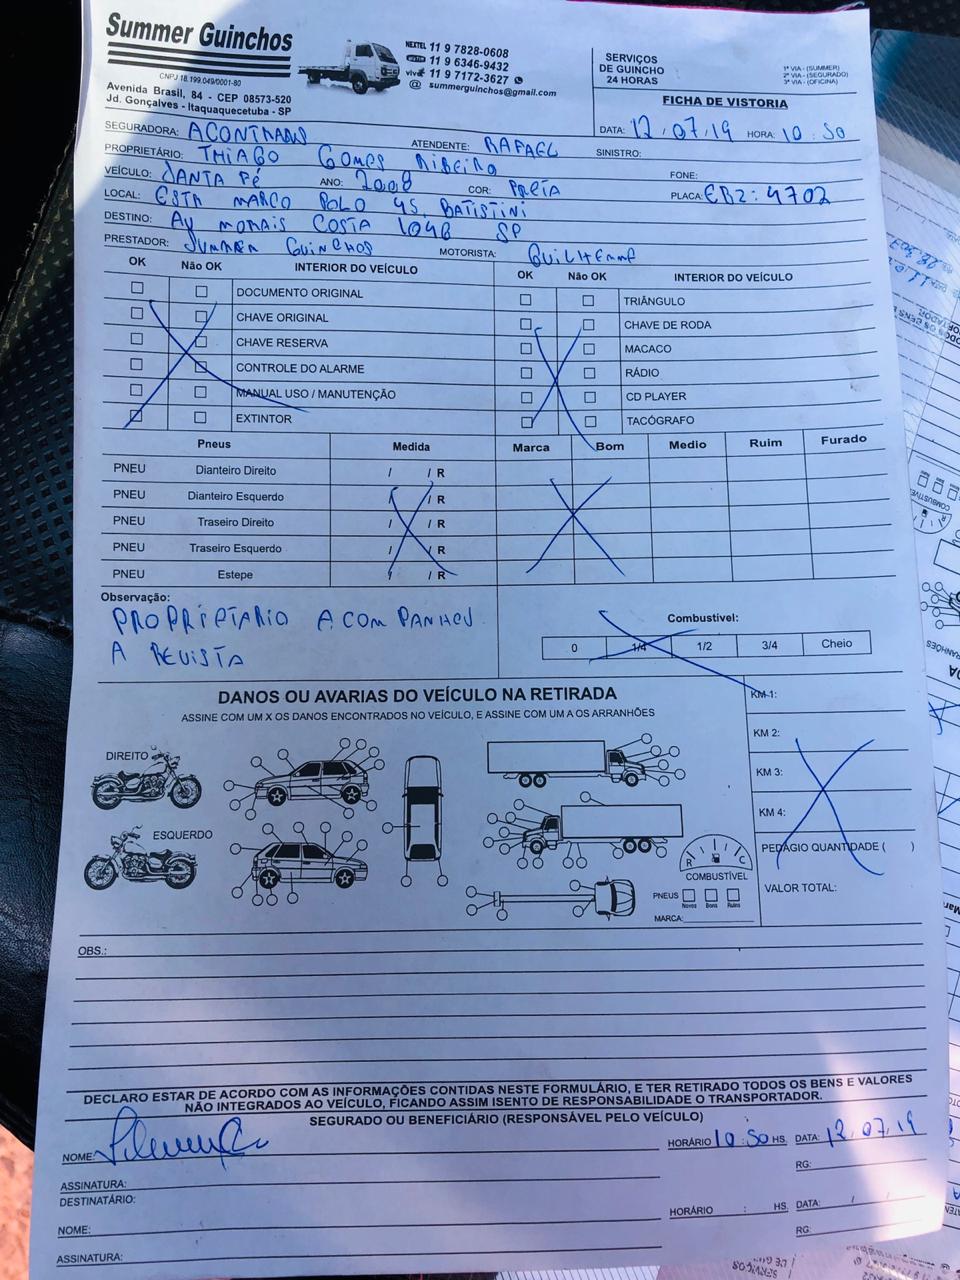 Summer Guinchos
CNPJ 18.199.049/0001-80
Avenida Brasil, 84 - CEP 08573-520
Jd. Gonçalves - Itaquaquecetuba - SP
NEXTEL 11 9 7828-0608
11 9 6346-9432
vivo 11 9 7172-3627
@ summerguinchos@gmail.com
SERVIÇOS
DE GUINCHO
24 HORAS
1ª VIA - (SUMMER)
2ª VIA - (SEGURADO)
3ª VIA - (OFICINA)
FICHA DE VISTORIA
DATA: 12.07.19 HORA: 10:50
SEGURADORA: ATENDENTE: RAFAEL SINISTRO:
PROPRIETÁRIO: THIAGO GOMES RIBEIRO FONE:
VEÍCULO: SANTA FÉ ANO: 2008 COR: PRETA PLACA:
LOCAL: ESTR MARCO POLO 45. BATISTINI
DESTINO: AV MORAIS COSTA SP
PRESTADOR: SUMMER GUINCHOS MOTORISTA: GUILHERME
OK Não OK INTERIOR DO VEÍCULO OK Não OK INTERIOR DO VEÍCULO
DOCUMENTO ORIGINAL TRIÂNGULO
CHAVE ORIGINAL CHAVE DE RODA
CHAVE RESERVA MACACO
CONTROLE DO ALARME RÁDIO
MANUAL USO / MANUTENÇÃO CD PLAYER
EXTINTOR TACÓGRAFO
Pneus Medida Marca Bom Medio Ruim Furado
PNEU Dianteiro Direito / / R
PNEU Dianteiro Esquerdo / / R
PNEU Traseiro Direito / / R
PNEU Traseiro Esquerdo / / R
PNEU Estepe / / R
Observação:
PROPRIETARIO ACOMPANHOU
A REVISTA
Combustível:
0 1/4 1/2 3/4 Cheio
DANOS OU AVARIAS DO VEÍCULO NA RETIRADA
ASSINE COM UM X OS DANOS ENCONTRADOS NO VEÍCULO, E ASSINE COM UM A OS ARRANHÕES
KM 1:
KM 2:
KM 3:
KM 4:
PEDÁGIO QUANTIDADE ( )
VALOR TOTAL:
DIREITO
ESQUERDO
R C
COMBUSTÍVEL
PNEUS
Novos Bons Ruins
MARCA:
OBS.:
DECLARO ESTAR DE ACORDO COM AS INFORMAÇÕES CONTIDAS NESTE FORMULÁRIO, E TER RETIRADO TODOS OS BENS E VALORES
NÃO INTEGRADOS AO VEÍCULO, FICANDO ASSIM ISENTO DE RESPONSABILIDADE O TRANSPORTADOR.
SEGURADO OU BENEFICIÁRIO (RESPONSÁVEL PELO VEÍCULO)
NOME: HORÁRIO 10:50 HS. DATA: 12.07.19
RG:
ASSINATURA:
DESTINATÁRIO:
NOME: HORÁRIO : HS. DATA: / /
RG:
ASSINATURA: